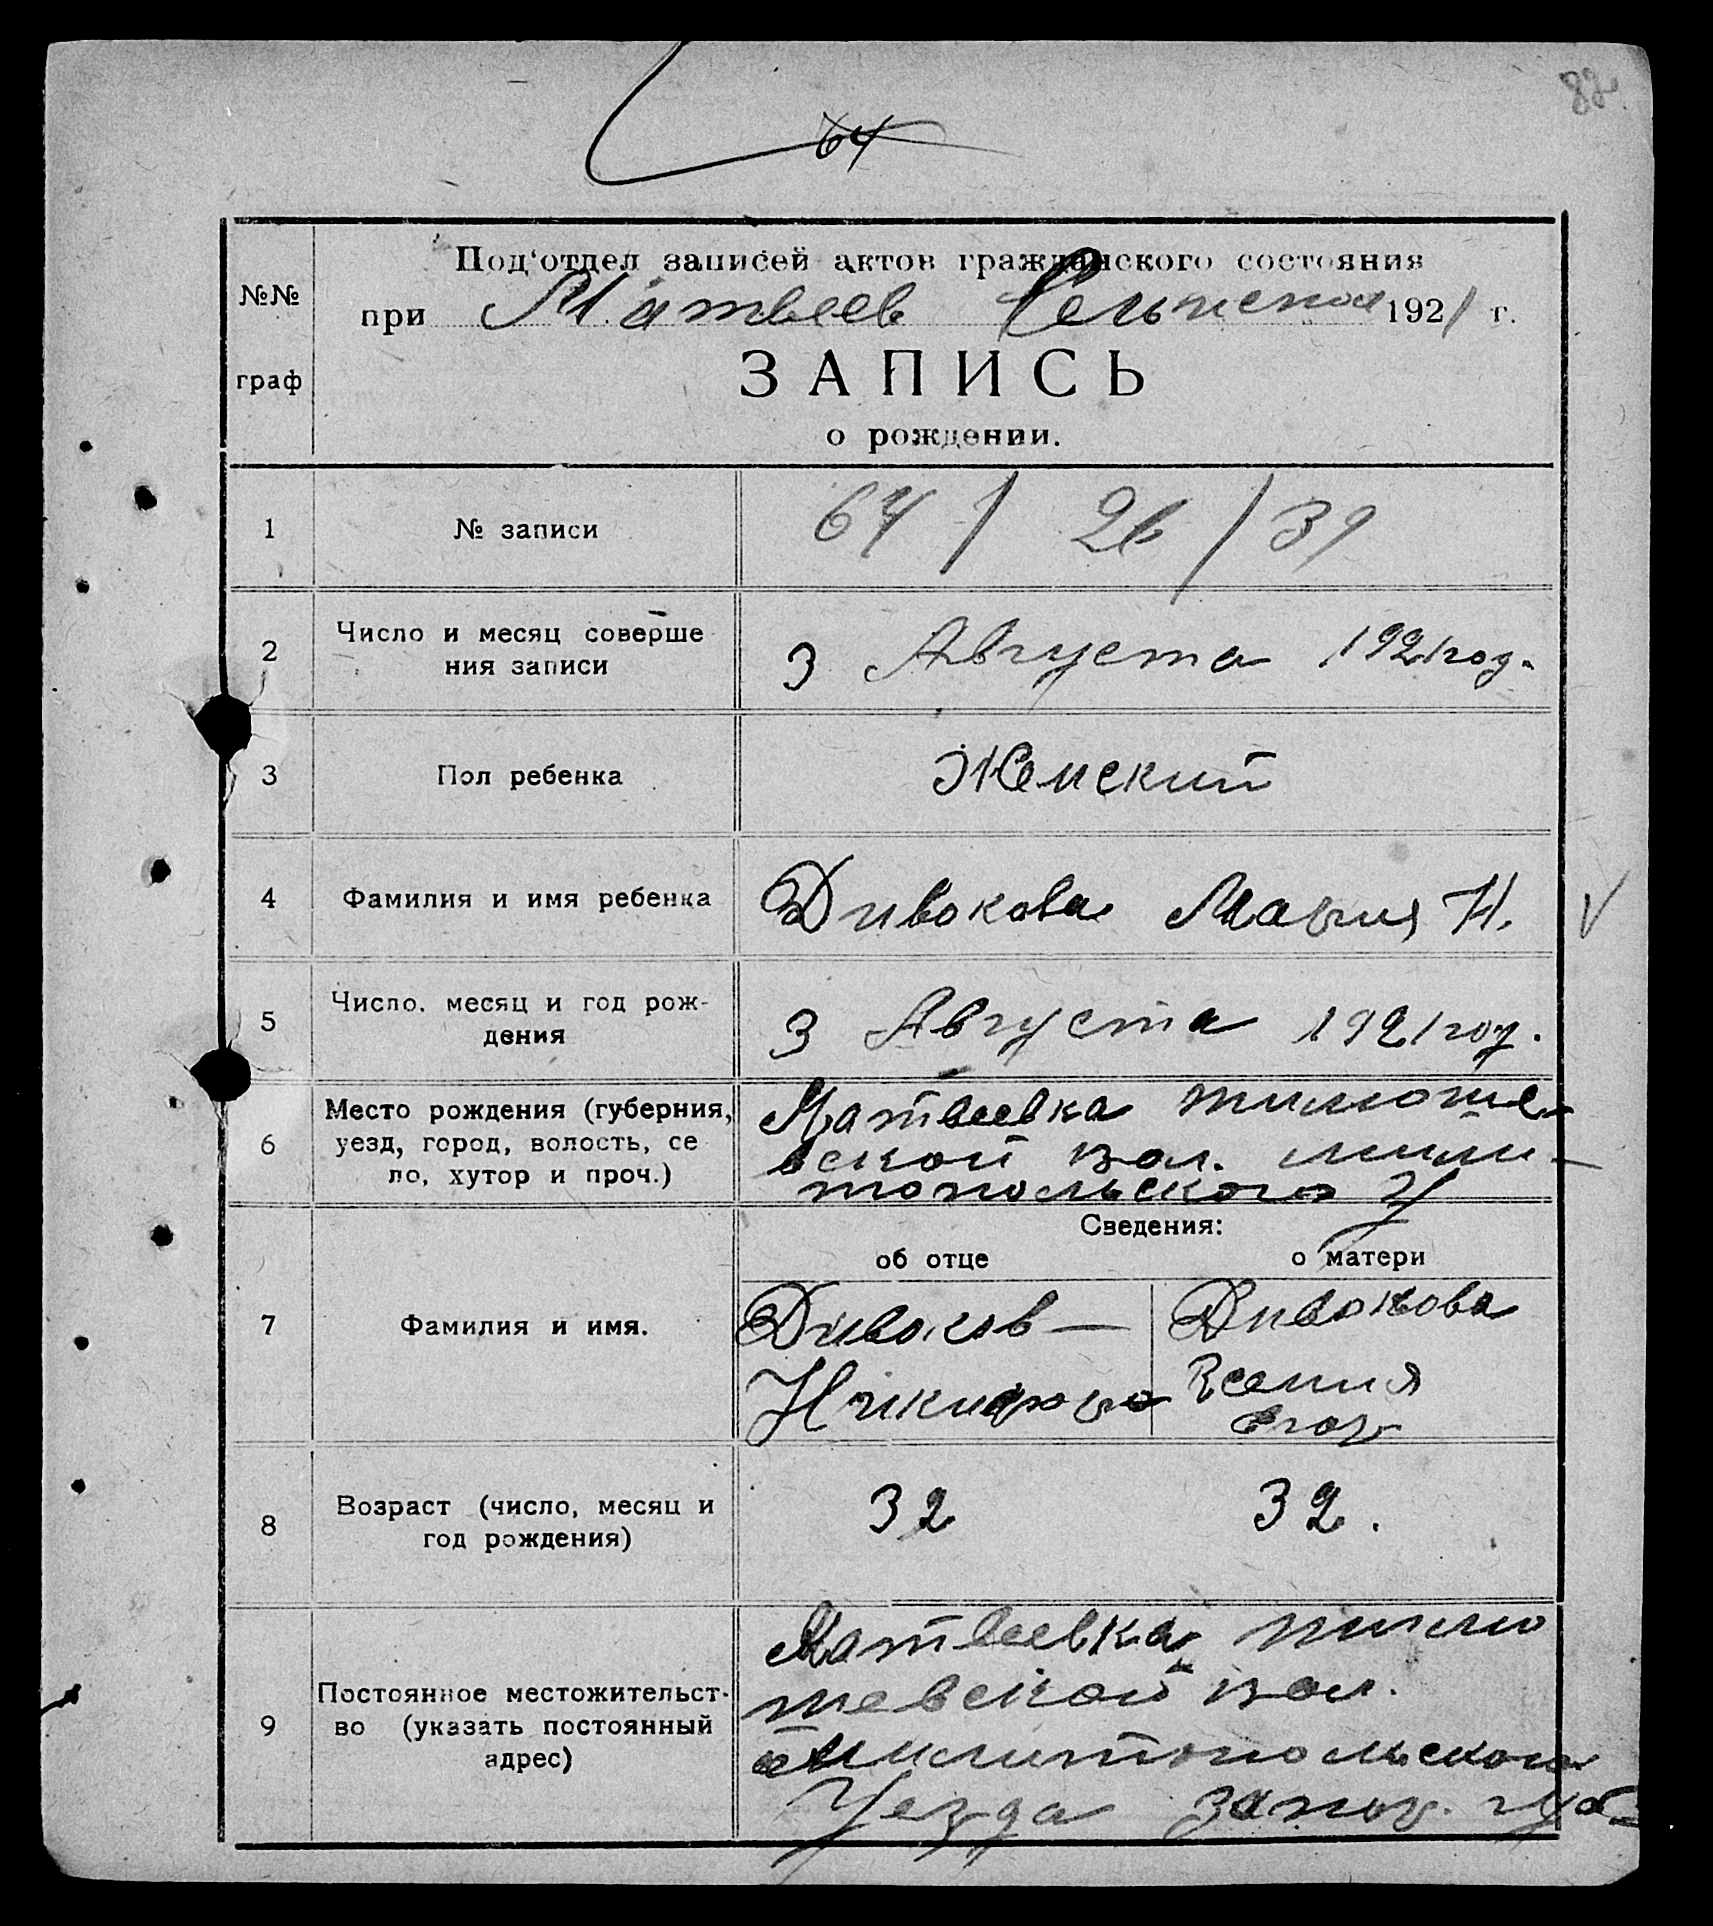 82
64
Под'отдел записей актов гражданского состояния
№№
при Матвеев Сельиспол 1921 г.
граф
ЗАПИСЬ
о рождении.
1 № записи 64 / 26 / 39
2 Число и месяц соверше
ния записи
3 Августа 1921 год.
3 Пол ребенка Женский
4 Фамилия и имя ребенка Дивокова Мария Н. V
5 Число, месяц и год рож-
дения
3 Августа 1921 год.
6 Место рождения (губерния,
уезд, город, волость, се
ло, хутор и проч.)
Матвеевка
вской вол. мили-
топольского У
Сведения:
об отце о матери
7 Фамилия и имя.
Дивоков — Дивокова
Никифор Ксения
Егор
8 Возраст (число, месяц и
год рождения)
32 32.
9 Постоянное местожительст-
во (указать постоянный
адрес)
Матвеевка
шевской вол.
Милитопольского
Уезда Запор. губ